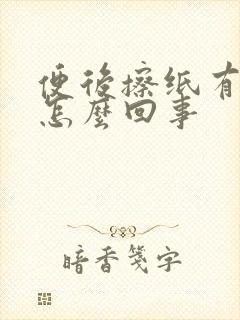 便後擦纸有
怎麼回事
暗香箋字